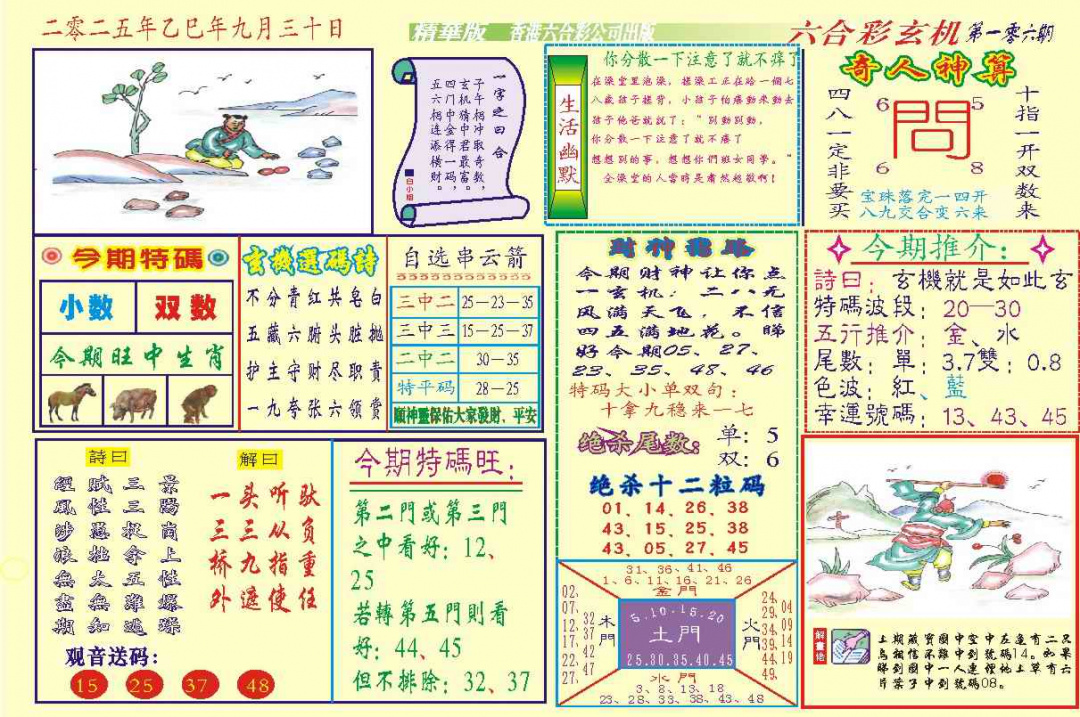 二零二五年乙巳年九月三十日
精華版 香港六合彩公司出版
六合彩玄机 第一零六期
一字之曰合
子午情冲取奇数,
玄机猜中君最富,
四门中金得一码,
五六栩连添横财
白小姐
生活幽默
你分散一下注意了就不痒了
在澡堂里泡澡,搓澡工正在给一個七
八歲孩子搓背,小孩子怕癢動來動去
孩子他爸就說了:"别動别動,
你分散一下注意了就不癢了
想想别的事。想想你們班女同學。"
全澡堂的人當時是肅然起敬啊!
奇人神算
四八一定非要买
6 5
問
6 8
十指一开双数来
宝珠落定一四开
八九交合变六来
今期特碼
小数 双数
今期旺中生肖
玄機選碼詩
不分青红共皂白
五藏六腑头脏抛
护主守财尽职责
一九夸张六领赏
自选串云箭
三中二 25—23—35
三中三 15—25—37
二中二 30—35
特平码 28—25
願神靈保佑大家發財、平安
财神指路
今期财神让你点
一玄机:二八无
风满天飞,不信
四五满地花。睇
好今期05、27、
23、35、48、46
特码大小单双句:
十拿九稳来一七
绝杀尾数: 单:5
双:6
绝杀十二粒码
01、14、26、38
43、15、25、38
43、05、27、45
今期推介:
詩曰: 玄機就是如此玄
特碼波段:20—30
五行推介:金、水
尾數:單:3.7雙:0.8
色波:紅、藍
幸運號碼:13、43、45
詩曰
景陽崗上性爆躁
三三杖拿五難逃
賦性愚拙太無知
經風涉浪無盡期
解曰
驮负重任
听从指使
头三九遮
一三桥外
观音送码:
15 25 37 48
今期特碼旺:
第二門或第三門
之中看好:12、
25
若轉第五門則看
好:44、45
但不排除:32、37
31、36、41、46
1、6、11、16、21、26
金門
02、07、12、17、22、27、
32、37、42、47
木門
5.10.15.20
土門
25.30.35.40.45
火門
24、29、34、39、44、49、
04、09、14、19
水門
3、8、13、18
23、28、33、38、43、48
解畫佬
上期藏寶圖中空中左邊有二只
鳥相信不難中到號碼14。如果
睇到圖中一人連僅他上草有六
片葉子中到號碼08。